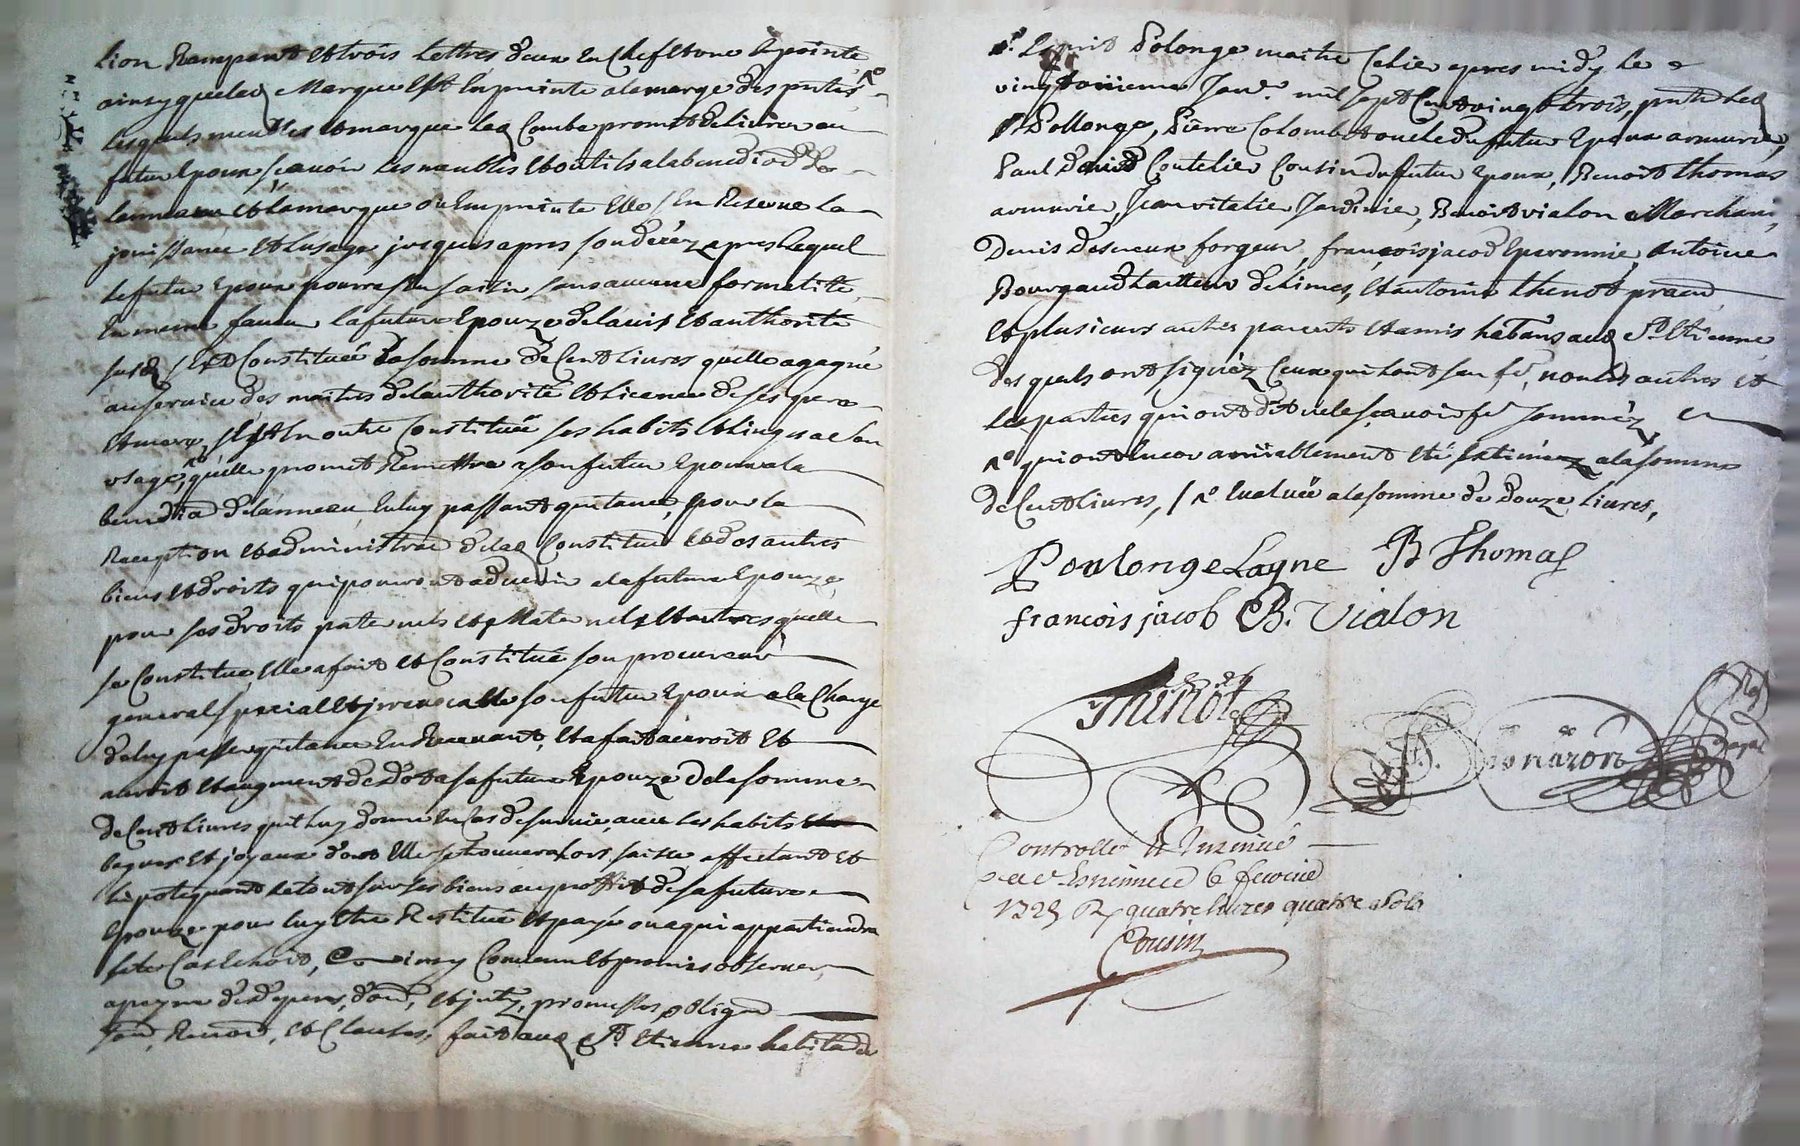 Lion Rampant et trois Lettres deux En Chef et une a pointe
ainsy que lad Marque Est Empreinte a la marge des pntes, Ro
lesquels meubles et marque led Combe promet delivrer au
futur Epoux sçavoir les meubles et outils a la benedion de
lanneau et la marque ou Empreinte Elle s'En Reserve la
jouissance et lusage jusques apres son decéz apres lequel
le futur Epoux pourra s'En saisir sans aucune formalité,
En meme faveur la future Epouze de lavis et authorité
susd s'Est Constituée la somme de Cent livres qu'elle a gagné
au service des maitres de lauthorité et licence de ses pere
et mere, s'Est En outre Constituée ses habits et linges a son
usage, Ro qu'elle promet Remettre a son futur Epoux a la
benedion de lanneau, En luy passant quitance, pour la
Reception et administraon de lad Constituon et des autres
biens et droits qui pourront advenir a la future Epouze,
pour ses droits paternels et Maternels et autres quelle
se Constitue, Elle a fait et Constitué son procureur
general special et irrevocable son futur Epoux a la Charge
de luy passer quitance En Recevant, et a fait acroit et
acroit et augment de dot a sa future Epouze de la somme
de Cent livres quil luy donne En Cas de survie, avec les habits
bagues et joyaux dont Elle se trouvera lors saisie, affectant et
hipotequant le tout sur ses biens au proffit de sa future
Epouze pour luy Etre Restitué et payé ou a qui appartiendra
led Cas Echeant, Ainsy Convenu et promis observer,
a peyne de depens, dom, et jntz, promesses, obligaon
som, Renon, et Clauses, fait aud St Etienne habitaon de
sr Esprit Polonge maitre Celier apres midy le
vingt onzieme Janer mil sept Cent vingt trois, pnts led
sr Pollonge, Pierre Colombet oncle du futur Epoux armurier,
Paul Coutelier Cousin du futur Epoux, Benoit thomas
armurier, Jean vitalie Jardinier, Benoit vialon Marchand,
Denis forgeur, françois jacod Eperonnier, Antoine
Bourgaud tailleur de limes, et antoine thenot pratn,
et plusieurs autres parents et amis habans aud St Etienne,
des quels ont signéz Ceux qui l'ont sceu fe, non les autres et
les parties qui ont dit ne le sçavoir fe sommés,
Ro qui ont Eté Estiméz a la somme
de Cent livres, / Ro Evaluée a la somme de douze livres,
Poulonge Layne B Thomas
françois jacob B. Vialon
Thinot
Controllé et Insinué
a St Estienne ce 6 fevrier
1723 R quatre livres quatre sols
Cousin